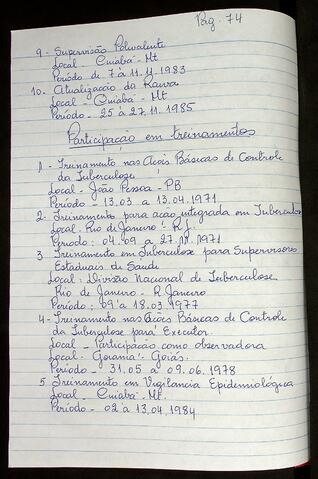 Pág. 74
9 - Supervisão Polivalente
Local - Cuiabá - Mt
Período de 7 à 11.11.1983
10. Atualização da
Local - Cuiabá - Mt
Período - 25 à 27.11.1985
Participação em treinamentos
1 - Treinamento nas Acões Básicas de Controle
da Tuberculose
Local - João Pessoa - PB
Período - 13.03 a 13.04.1971
2. Treinamento para acão integrada em Tuberculose
Local: Rio de Janeiro - R.J.
Período: 04.09 a 27.11.1971
3 Treinamento em Tuberculose para Supervisores
Estaduais de Saúde
Local: Divisão Nacional de Tuberculose
Rio de Janeiro - R. Janeiro
Período: 09 a 18.03.1977
4 - Treinamento nas Acões Básicas de Controle
da Tuberculose para Executor.
Local - Participacão como observadora
Local - Goiania - Goiás.
Período - 31.05 a 09.06.1978
5 Treinamento em Vigilancia Epidemiológica
Local - Cuiabá - Mt.
Período - 02 à 13.04.1984